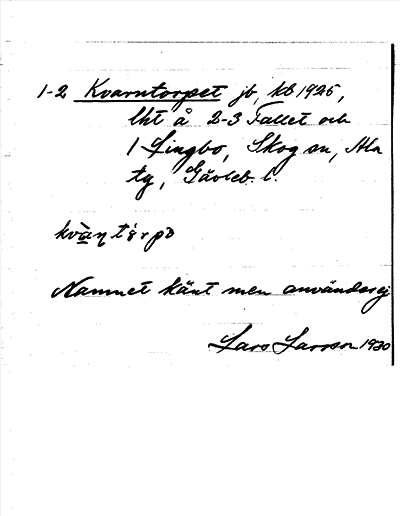 1-2 Kvarntorpet jb, kb 1925,
lht å 2-3 Fallet och
1 Lingbo, Skog sn, Ala
tg, Gävleb. l.
kvànt̀årpə
Namnet känt men användes ej
Lars Larsson 1930